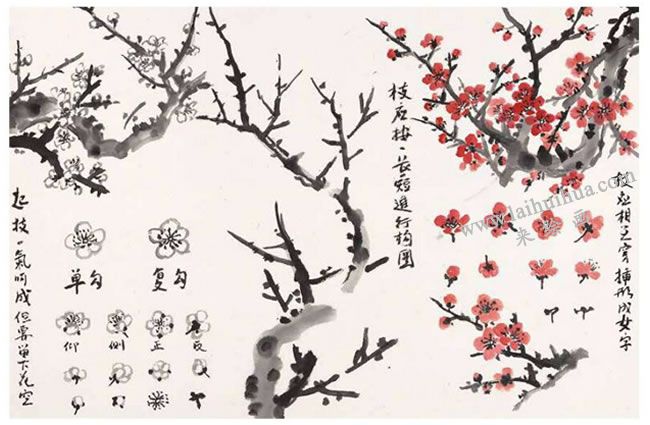 枝应按一长短進行构圖
枝应相互穿插形成女字
起枝一氣呵成但要留下花空
单勾
复勾
仰
侧
正
反
www.laihuihua.com
来绘画